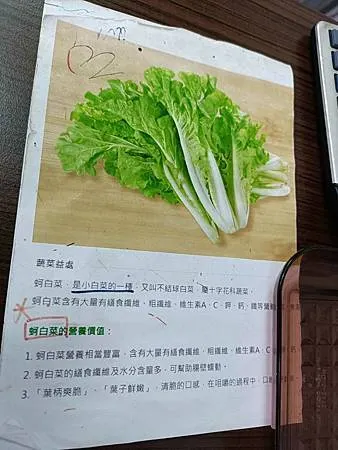 蔬菜益處
蚵白菜，是小白菜的一種，又叫不結球白菜，屬十字花科蔬菜。
蚵白菜含有大量有膳食纖維、粗纖維、維生素A、C、鉀、鈣、鐵等營
蚵白菜的營養價值：
1. 蚵白菜營養相當豐富，含有大量有膳食纖維、粗纖維、維生素A、C、
2. 蚵白菜的膳食纖維及水分含量多，可幫助腸壁蠕動。
3. 「葉柄爽脆」、「葉子鮮嫩」，清脆的口感，在咀嚼的過程中，口